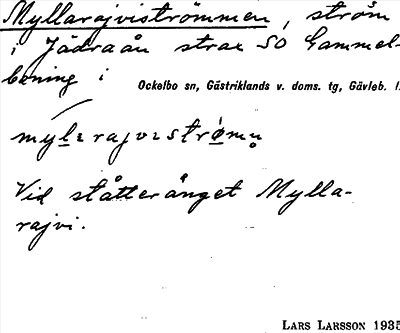 Myllarajviströmmen, ström
i Jädraån strax SO Gammel-
bening i
Ockelbo sn, Gästriklands v. doms. tg, Gävleb. l.
Vid slåtteränget Mylla-
rajvi.
LARS LARSSON 1935